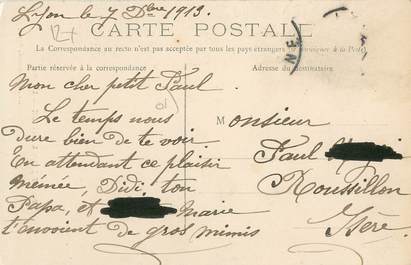 Lyon le 7 Dbre 1913.
CARTE POSTALE
La Correspondance au recto n'est pas acceptée par tous les pays étrangers (Se renseigner à la Poste)
Partie réservée à la correspondance
Adresse du destinataire
Mon cher petit Paul
Le temps nous
dure bien de te voir.
En attendant ce plaisir
Mémée, Didi, ton
Papa, et Marie
t'envoient de gros mimis
Monsieur
Paul
Roussillon
Isère